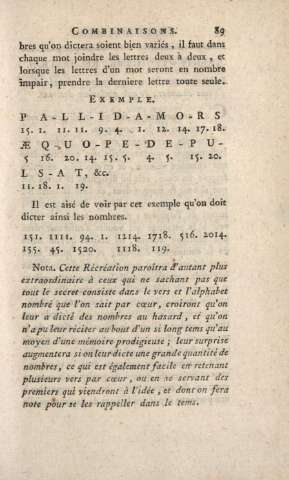 COMBINAISONS. 89
bres qu'on dictera soient bien variés, il faut dans
chaque mot joindre les lettres deux à deux, et
lorsque les lettres d'un mot seront en nombre
impair, prendre la derniere lettre toute seule.
EXEMPLE.
P A-L-L-I-D-A-M-O-R-S
15. 1. 11. 11. 9. 4. 1. 12. 14. 17. 18.
Æ Q U-O-P-E-D-E-P U-
5 16. 20. 14. 15. 5. 4. 5. 15. 20.
L S-A T, &c.
11. 18. 1. 19.
Il est aisé de voir par cet exemple qu'on doit
dicter ainsi les nombres.
151. 1111. 94. 1. 1214. 1718. 516. 2014.
155. 45. 1520. 1118. 119.
Nota. Cette Récréation paroîtra d'autant plus
extraordinaire à ceux qui ne sachant pas que
tout le secret consiste dans le vers et l'alphabet
nombré que l'on sait par cœur, croiront qu'on
leur a dicté des nombres au hasard, et qu'on
n'a pu leur réciter au bout d'un si long tems qu'au
moyen d'une mémoire prodigieuse; leur surprise
augmentera si on leur dicte une grande quantité de
nombres, ce qui est également facile en retenant
plusieurs vers par cœur, ou en se servant des
premiers qui viendront à l'idée, et dont on fera
note pour se les rappeller dans le tems.